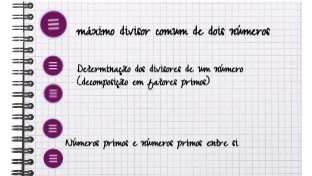 máximo divisor comum de dois números
Determinação dos divisores de um número
(decomposição em fatores primos)
Números primos e números primos entre si